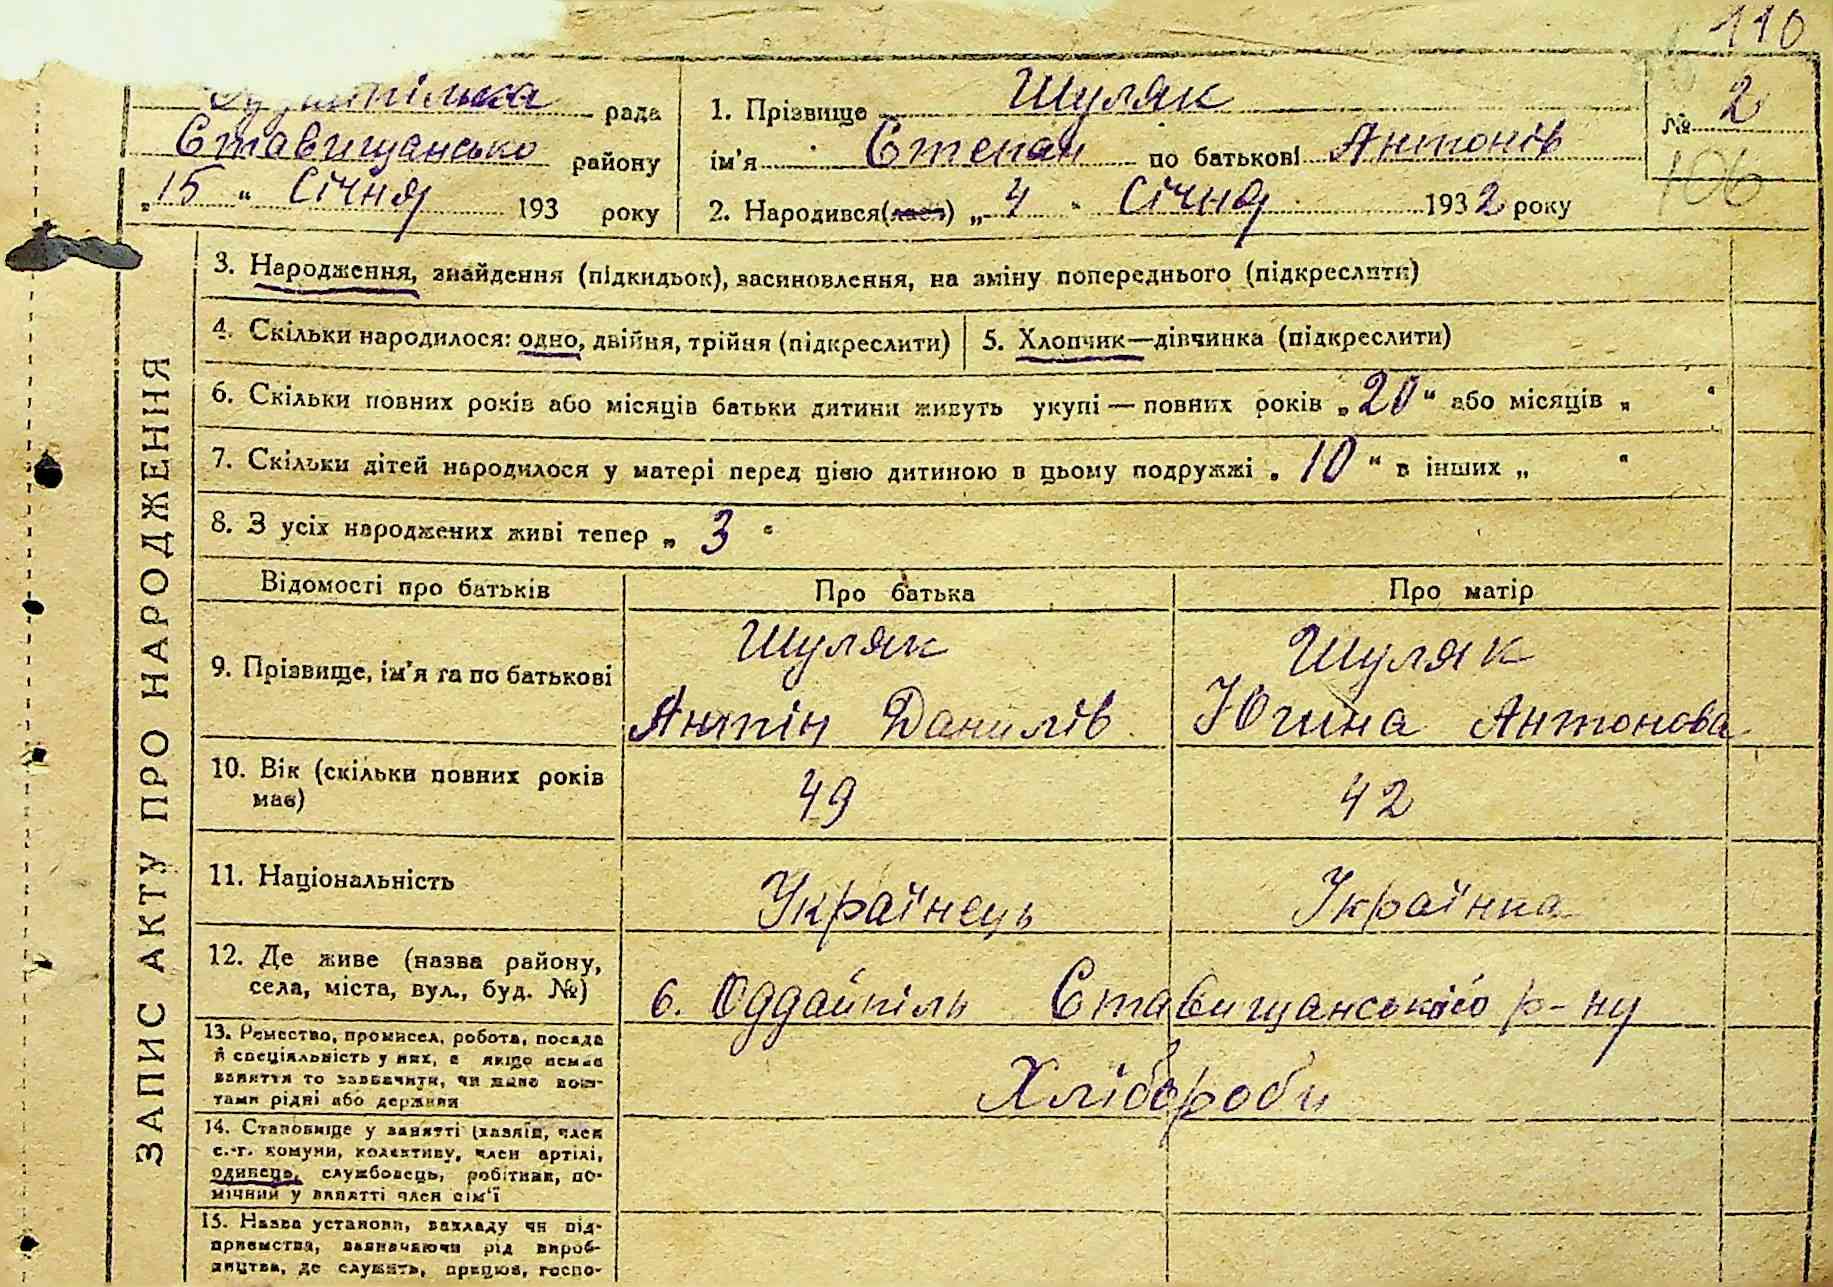 110
рада
Ставищансько району
„15" Січня 193 року
1. Прізвище Шуляк
ім'я Степан по батькові Антонів
2. Народився(лась) „4" Січня 1932 року
№ 2
106
ЗАПИС АКТУ ПРО НАРОДЖЕННЯ
3. Народження, знайдення (підкидьок), засиновлення, на зміну попереднього (підкреслити)
4. Скільки народилося: одно, двійня, трійня (підкреслити)
5. Хлопчик—дівчинка (підкреслити)
6. Скільки повних років або місяців батьки дитини живуть укупі — повних років „20" або місяців „ "
7. Скільки дітей народилося у матері перед цією дитиною в цьому подружжі „10" в інших „ "
8. З усіх народжених живі тепер „3"
Відомості про батьків
Про батька
Про матір
9. Прізвище, ім'я та по батькові
Шуляк
Антін Данилів
Шуляк
Югина Антонова
10. Вік (скільки повних років
має)
49
42
11. Національність
Українець
Українка
12. Де живе (назва району,
села, міста, вул., буд. №)
с. Оддайпіль Ставищанського р-ну
13. Ремество, промисел, робота, посада
й спеціяльність у них, а якщо немає
заняття то зазначити, чи живе кош-
тами рідні або держави
Хлібороби
14. Становище у занятті (хазяїн, член
с.-г. комуни, колективу, член артілі,
одинець, службовець, робітник, по-
мічний у занятті член сім'ї
15. Назва установи, закладу чи під-
приємства, зазначаючи рід вироб-
ництва, де служить, працює, госпо-